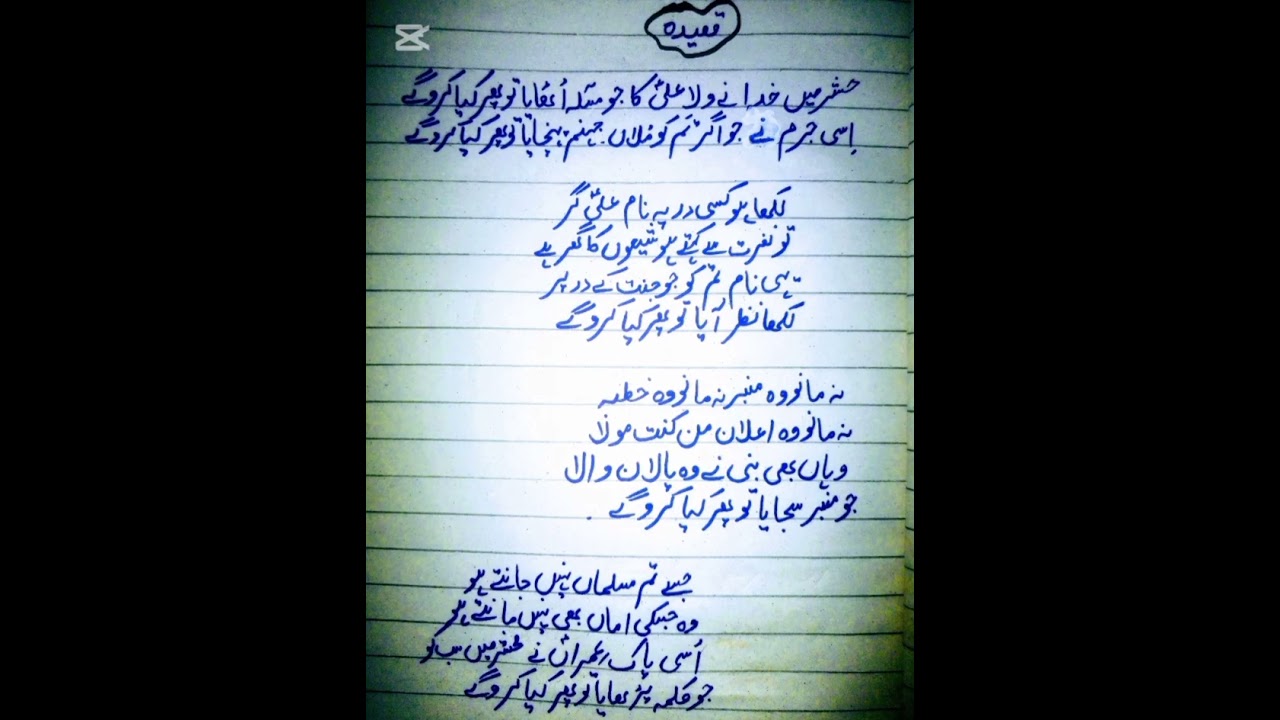 قصیدہ
حشر میں خدا نے ولاِ علیؑ کا جو مسئلہ اُٹھایا تو پھر کیا کرو گے
اِسی جرم نے جو اگر تم کو ملاں جہنم پہنچایا تو پھر کیا کرو گے
لکھا ہو کسی در پہ نام علیؑ گر
تو نفرت سے کہتے ہو شیعوں کا گھر ہے
یہی نام تم کو جو جنت کے در پر
لکھا نظر آیا تو پھر کیا کرو گے
نہ مانو وہ منبر نہ مانو وہ خطبہ
نہ مانو وہ اعلان من کنت مولا
وہاں بھی نبی نے وہ پالان والا
جو منبر سجایا تو پھر کیا کرو گے .
جسے تم مسلماں نہیں جانتے ہو
وہ جسکی اماں بھی نہیں مانتے ہو
اُسی پاک عمرانؑ نے محشر میں سب کو
جو کلمہ پڑھایا تو پھر کیا کرو گے